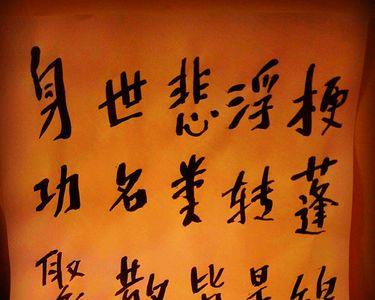 身世悲浮梗
功名类转蓬
聚散皆是